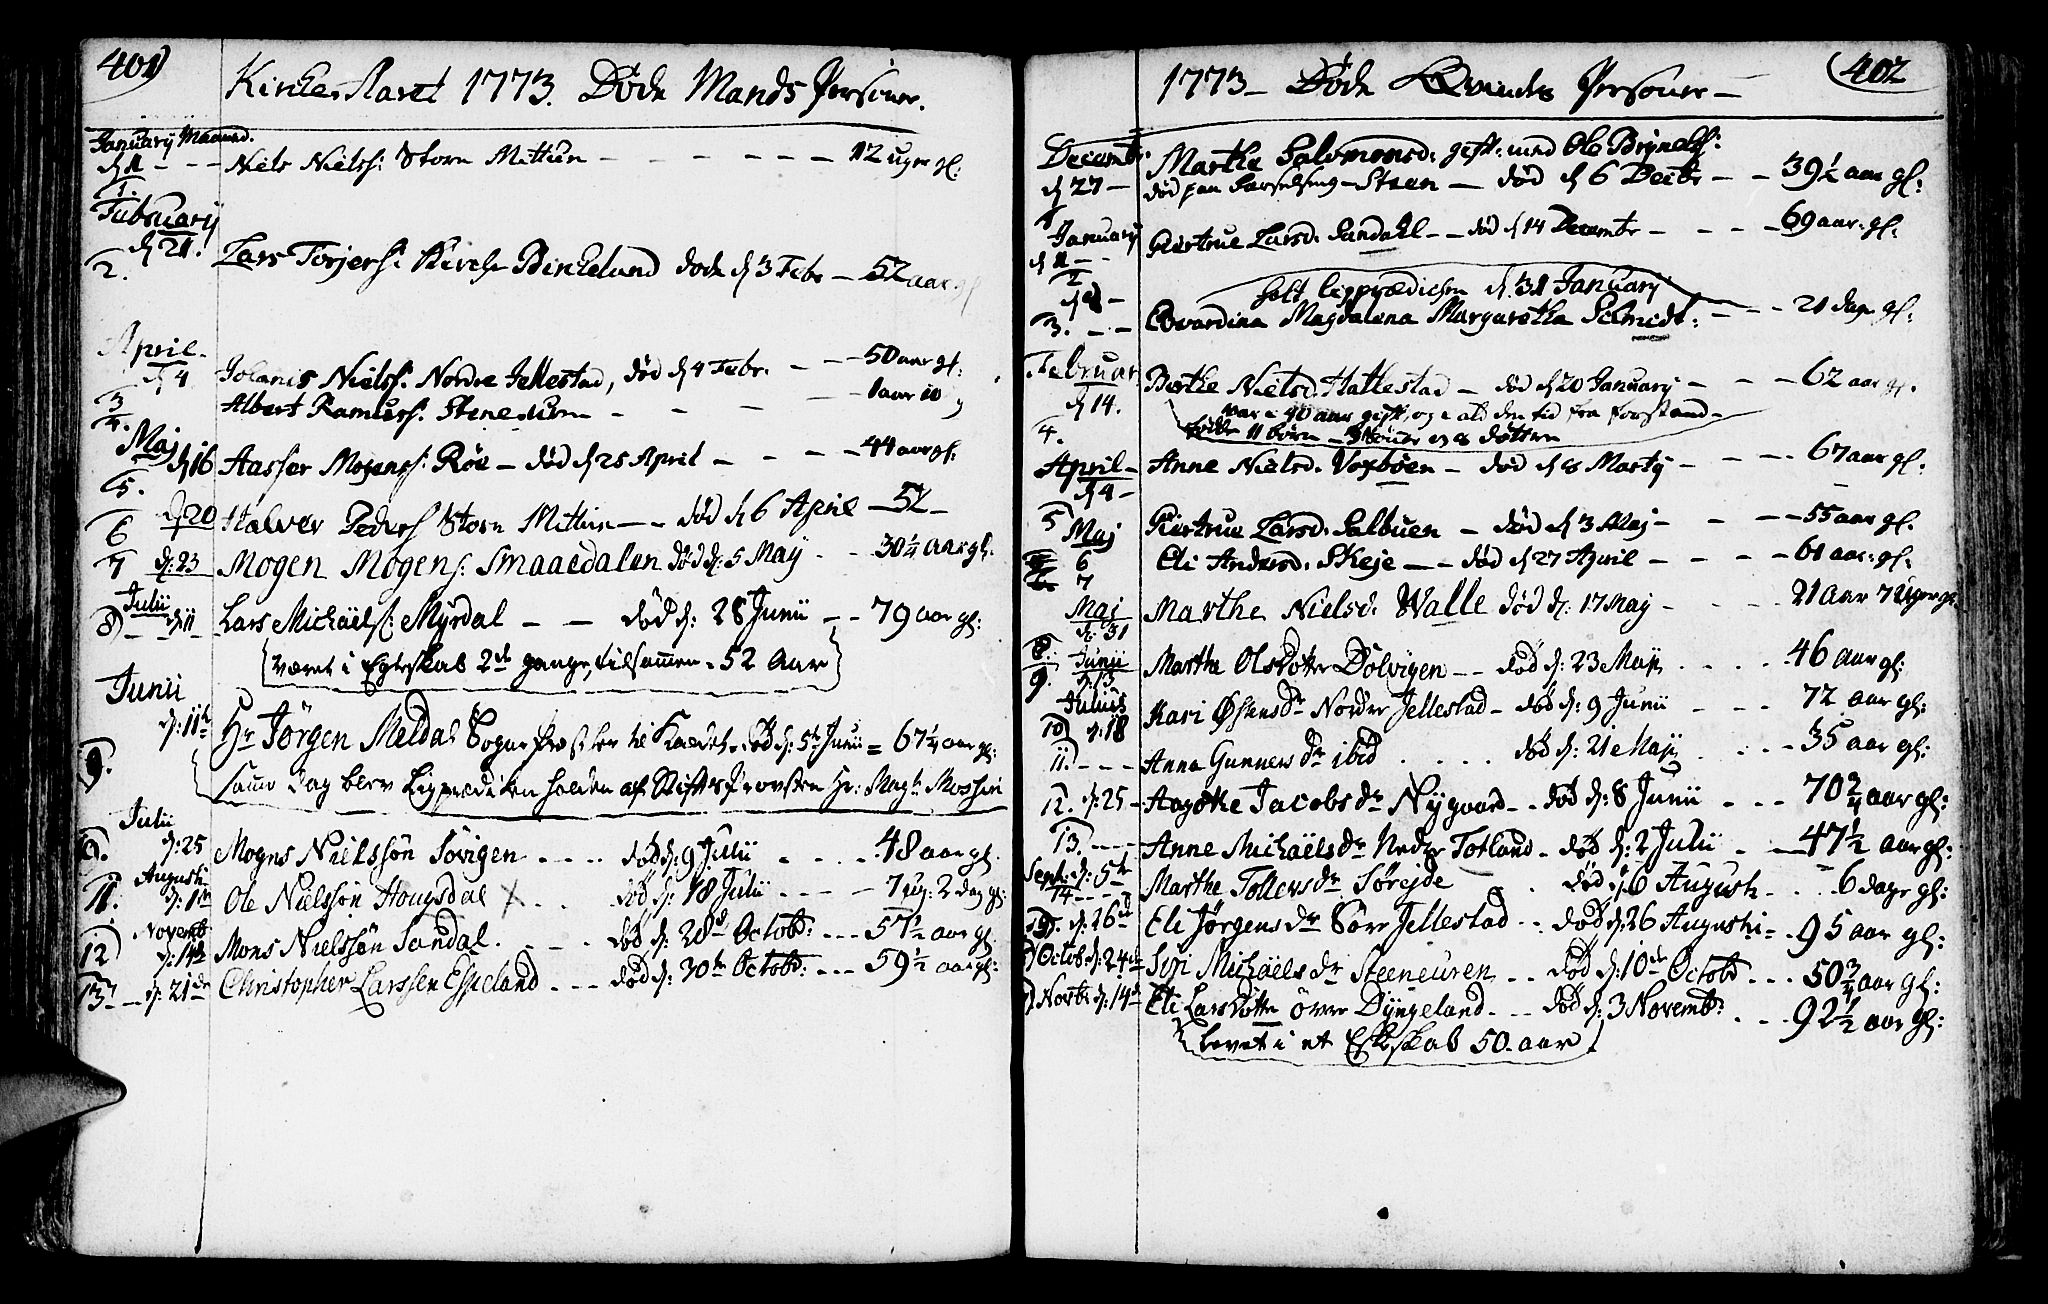 401)
Kirke Aaret 1773. Døde Mands Personer.
Januarij Maaned.
d 11 - - - Niels Nielss: Storn Mittun - - - - - - 12 uger gl:
1.
Februarij
d 21.
2. Lars Torjers: Kirche Birkeland døde d 3 Febr - 52 aar gl
April.
d 4 Johanis Nielss: Nordre Jellestad, død d 4 Febr. - - - 50 aar gl:
3
4. Albert Rasmuss: Steneduren - - - - - 1 aar 10
Maj
d 16 Aasser Mogenss: Røe - død d 25 April - - - - 44 aar gl:
5.
d 20 Halver Peders Storn Mittun - - død d 6 April - 52 -
6
7 d: 23 Mogen Mogens: Smaaedalen død d: 5 May - - - 30 1/4 aar gl:
Julii
8) - d: 11 Lars Michaëls: Myrdal - - død d: 28 Junii - - 79 aar gl:
været i Egteskab 2de gange, tilsammen - 52 Aar
Junii
d: 11te Hr Jörgen Meldal Sogne Præst her til Kaldet. død d: 5te Junii = 67 1/4 aar gl:
9.
samme Dag blev Ligprædiken holden af Stifts Provsten Hr: Magr: Mossin
Julii
d: 25 Mogns Nielssøn Søvigen - - - - død d: 9 Julii - - - - 48 aar gl.
Augusti
11. d: 1te Ole Nielssøn Hougsdal X - - død d: 18 Julii - - - - 7 ug: 2 dag gl:
Novemb
12) d: 14de Mons Nielssøn Sandal. - - - - død d: 28de Octobr: - - - 57 1/2 aar gl.
13) - d: 21de Christopher Larssen Espeland - - - død d: 30te Octobr: - - - 59 1/2 aar gl:
402
1773 - Døde Qvindes Personer -
Decembr. Marthe Salomonsd: gift med Ole Brynels:
d 27 - død paa Barselseng - Steen - død d 6 Decbr - - 39 1/2 aar gl:
1
Januarij Giertrue Larsd. Sandahl - - død d 14 Decembr - - - - 69 aar gl:
d 11 - -
2
holt ligprædichen d. 31 January
3. - - Edvardina Magdalena Margaretha Schmidt: - - - 21 dage gl:
Februar
d 14. Birthe Nielsd. Hatlestad - død d 20 January - - - 62 aar gl.
var i 40 aar gift, og i ald den tid fra forstand
11 børn - 3 sønner og 8 døttre
4.
April - Anne Nielsd. Voxboen - død d 8 Martij - - - - 67 aar gl:
d 4 -
5
Maj Giertrue Larsd. Salbuen - død d 3 Maj - - - - 55 aar gl.
6 Eli Andersd. Skeje - - død d 27 April - - - - 61 aar gl:
7
Maj Marthe Nielsd. Walle død d: 17 Maj - - - - - 21 aar 7 uger gl.
d: 31
8. Junii Martha Olsdotter Dolvigen - - død d: 23 Maji - - - - 46 aar gl:
9. d: 13
Julius Kari Øskensdr Nordre Jellestad - død d: 9 Junii - - - 72 aar gl:
10) d: 18
11. - - - Anna Gunnersdr ibid . . . . . død d: 21 Maji . . . - 35 aar gl:
12. d: 25 - Aagothe Jacobsdr Nygaard - - død d: 8 Junii - - - 70 3/4 aar gl:
13. - - - Anne Michaëlsdr Nedre Totland - død d: 2 Julii - - 47 1/2 aar gl:
Sept: d: 5te
14 - - Marthe Tollevsdr Sørejde - - død d: 6 Augusti - - . 6 dage gl:
15. d: 26de Eli Jørgensdr Söre Jellestad - - død d: 26 Augusti - - 95 aar gl:
Octob d: 24de Siri Michaëlsdr Steeneuren - - død d: 10de Octobr - - - 50 3/4 aar gl:
Novbr d: 14de Eli Larsdotter övre Dyngeland - - - død d: 3 Novembr: - - - 92 1/2 aar gl:
levet i et Egteskab 50 - aar